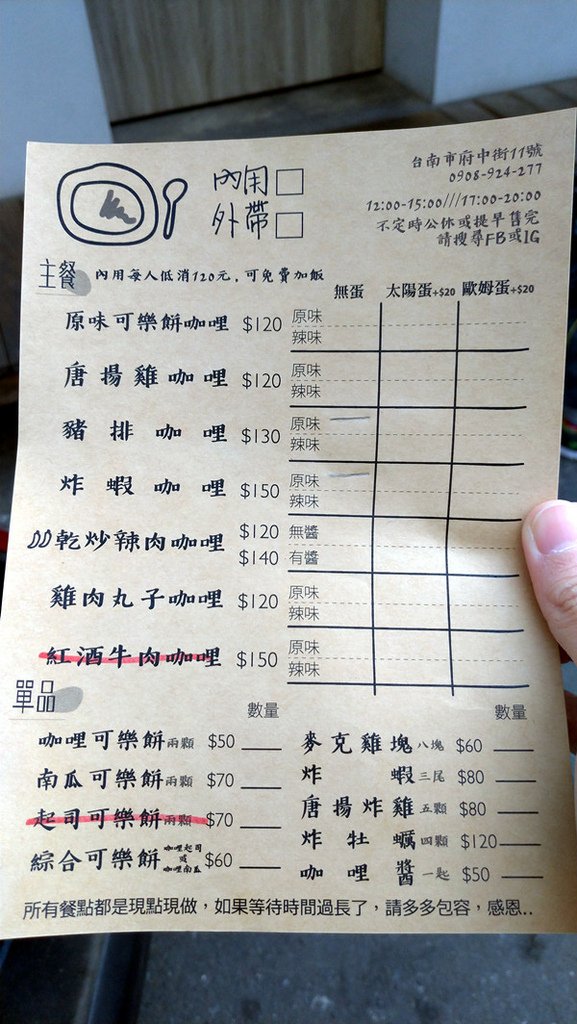 內用
外帶
台南市府中街11號
0908-924-277
12:00-15:00///17:00-20:00
不定時公休或提早售完
請搜尋FB或IG
主餐 內用每人低消120元,可免費加飯
無蛋 太陽蛋+$20 歐姆蛋+$20
原味可樂餅咖哩 $120 原味
辣味
唐揚雞咖哩 $120 原味
辣味
豬排咖哩 $130 原味
辣味
炸蝦咖哩 $150 原味
辣味
乾炒辣肉咖哩 $120 無醬
$140 有醬
雞肉丸子咖哩 $120 原味
辣味
紅酒牛肉咖哩 $150 原味
辣味
單品
數量
咖哩可樂餅兩顆 $50
南瓜可樂餅兩顆 $70
起司可樂餅兩顆 $70
綜合可樂餅 咖哩起司 或 咖哩南瓜 $60
數量
麥克雞塊八塊 $60
炸蝦三尾 $80
唐揚炸雞五顆 $80
炸牡蠣四顆 $120
咖哩醬一匙 $50
所有餐點都是現點現做,如果等待時間過長了,請多多包容,感恩..